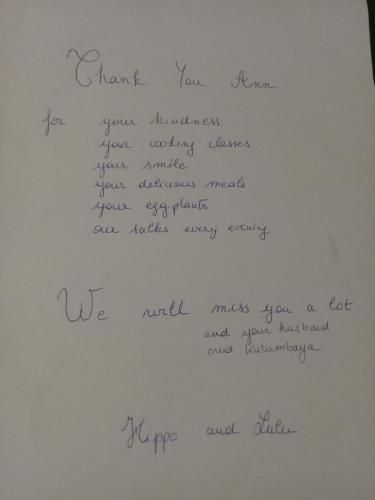 Thank You Ann
for your kindness
your cooking classes
your smile
your delicious meals
your eggplants
our talks every evening
We will miss you a lot
and your husband
and Kutumbaya
Hippo and Lulu